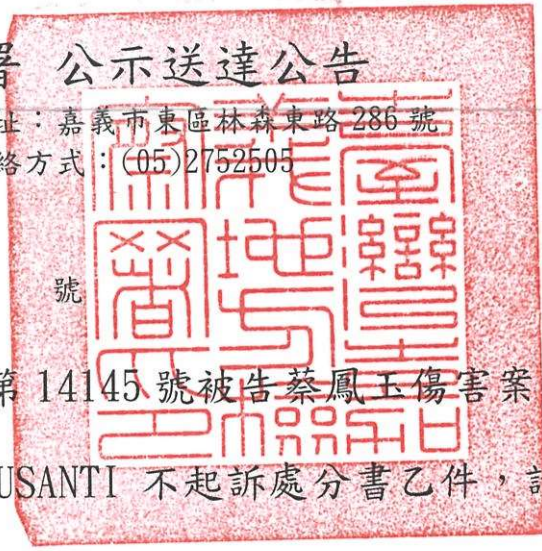 署 公示送達公告
址：嘉義市東區林森東路 286 號
絡方式：(05)2752505
號
第 14145 號被告蔡鳳玉傷害案
USANTI 不起訴處分書乙件，
臺灣嘉
義地方檢
察署印